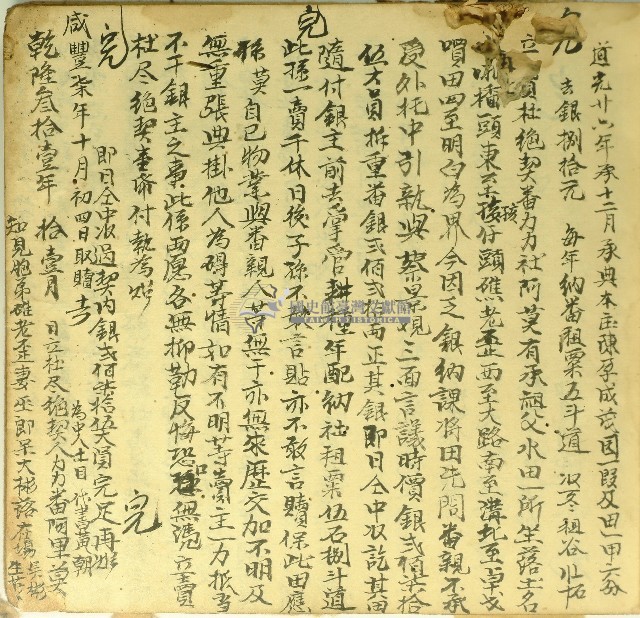 完
道光廿六年承十二月承典本庄陳草成茂園一段及田一甲二分
去銀捌拾元 每年納番租粟五斗道 收冬租谷
立賣杜絕契番力力社阿莫有承祖父水田一所坐落土名
橋頭東至孩仔頭礁老歪西至大路南至溝北至
孩
唄田四至明白為界今因乏銀納課將田先問番親不承
受外托中引就與蔡景觀三面言議時價銀弍佰柒拾
伍大員折重番銀弍佰弍拾兩正其銀即日仝中收訖其田
隨付銀主前去掌管耕種年配納社租粟伍石捌斗道
此係一賣千休日後子孫不敢言貼亦不敢言贖保此田應
係莫自己物業與番親人等無干亦無來歷交加不明及
無重張典掛他人為碍等情如有不明等情賣主一力抵當
不干銀主之事此係兩愿各無抑勒反悔恐口無憑立賣
杜尽絕契壹紙付執為炤
完
即日仝中收過契內銀弍佰柒拾伍大員完足再炤
完
咸豐柒年十月初四日取贖去
為中人 代書黃朝
乾隆叁拾壹年 拾壹月 日立杜尽絕契人力力番阿里莫
知見胞弟礁老歪妻巫即
完
國史館臺灣文獻館
TAIWAN HISTORICA